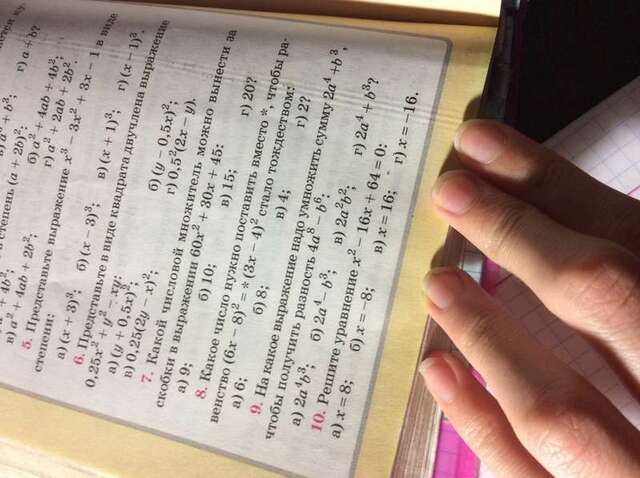 в) a² + 4ab + 2b²;
б) a² – 4ab + 4b²;
г) a² + 2ab + 2b².
степень (a + 2b)²;
5. Представьте выражение x³ – 3x² + 3x – 1 в виде
степени:
а) (x + 3)³; б) (x – 3)³; в) (x + 1)³; г) (x – 1)³.
6. Представьте в виде квадрата двучлена выражение
0,25x² + y² – xy:
а) (y + 0,5x)²; б) (y – 0,5x)²;
в) 0,25(2y – x)²; г) 0,5²(2x – y).
7. Какой числовой множитель можно вынести за
скобки в выражении 60x² + 30x + 45:
а) 9; б) 10; в) 15; г) 20?
8. Какое число нужно поставить вместо *, чтобы ра-
венство (6x – 8)² = * (3x – 4)² стало тождеством:
а) 6; б) 8; в) 4; г) 2?
9. На какое выражение надо умножить сумму 2a⁴ + b³,
чтобы получить разность 4a⁸ – b⁶:
а) 2a⁴b³; б) 2a⁴ – b³; в) 2a²b²; г) 2a⁴ + b³?
10. Решите уравнение x² – 16x + 64 = 0:
а) x = 8; б) x = –8; в) x = 16; г) x = –16.